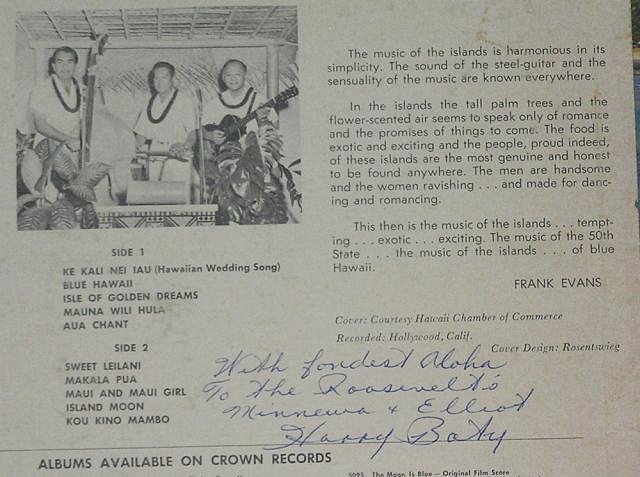 The music of the islands is harmonious in its
simplicity. The sound of the steel-guitar and the
sensuality of the music are known everywhere.
In the islands the tall palm trees and the
flower-scented air seems to speak only of romance
and the promises of things to come. The food is
exotic and exciting and the people, proud indeed,
of these islands are the most genuine and honest
to be found anywhere. The men are handsome
and the women ravishing . . . and made for danc-
ing and romancing.
This then is the music of the islands . . . tempt-
ing . . . exotic . . . exciting. The music of the 50th
State . . . the music of the islands . . . of blue
Hawaii.
FRANK EVANS
SIDE 1
KE KALI NEI IAU (Hawaiian Wedding Song)
BLUE HAWAII
ISLE OF GOLDEN DREAMS
MAUNA WILI HULA
AUA CHANT
SIDE 2
SWEET LEILANI
MAKALA PUA
MAUI AND MAUI GIRL
ISLAND MOON
KOU KINO MAMBO
Cover: Courtesy Hawaii Chamber of Commerce
Recorded: Hollywood, Calif.
Cover Design: Rosentswieg
With fondest Aloha
To the Roosevelts
Minnewa & Elliot
Harry Baty
ALBUMS AVAILABLE ON CROWN RECORDS
5095 The Moon Is Blue – Original Film Score